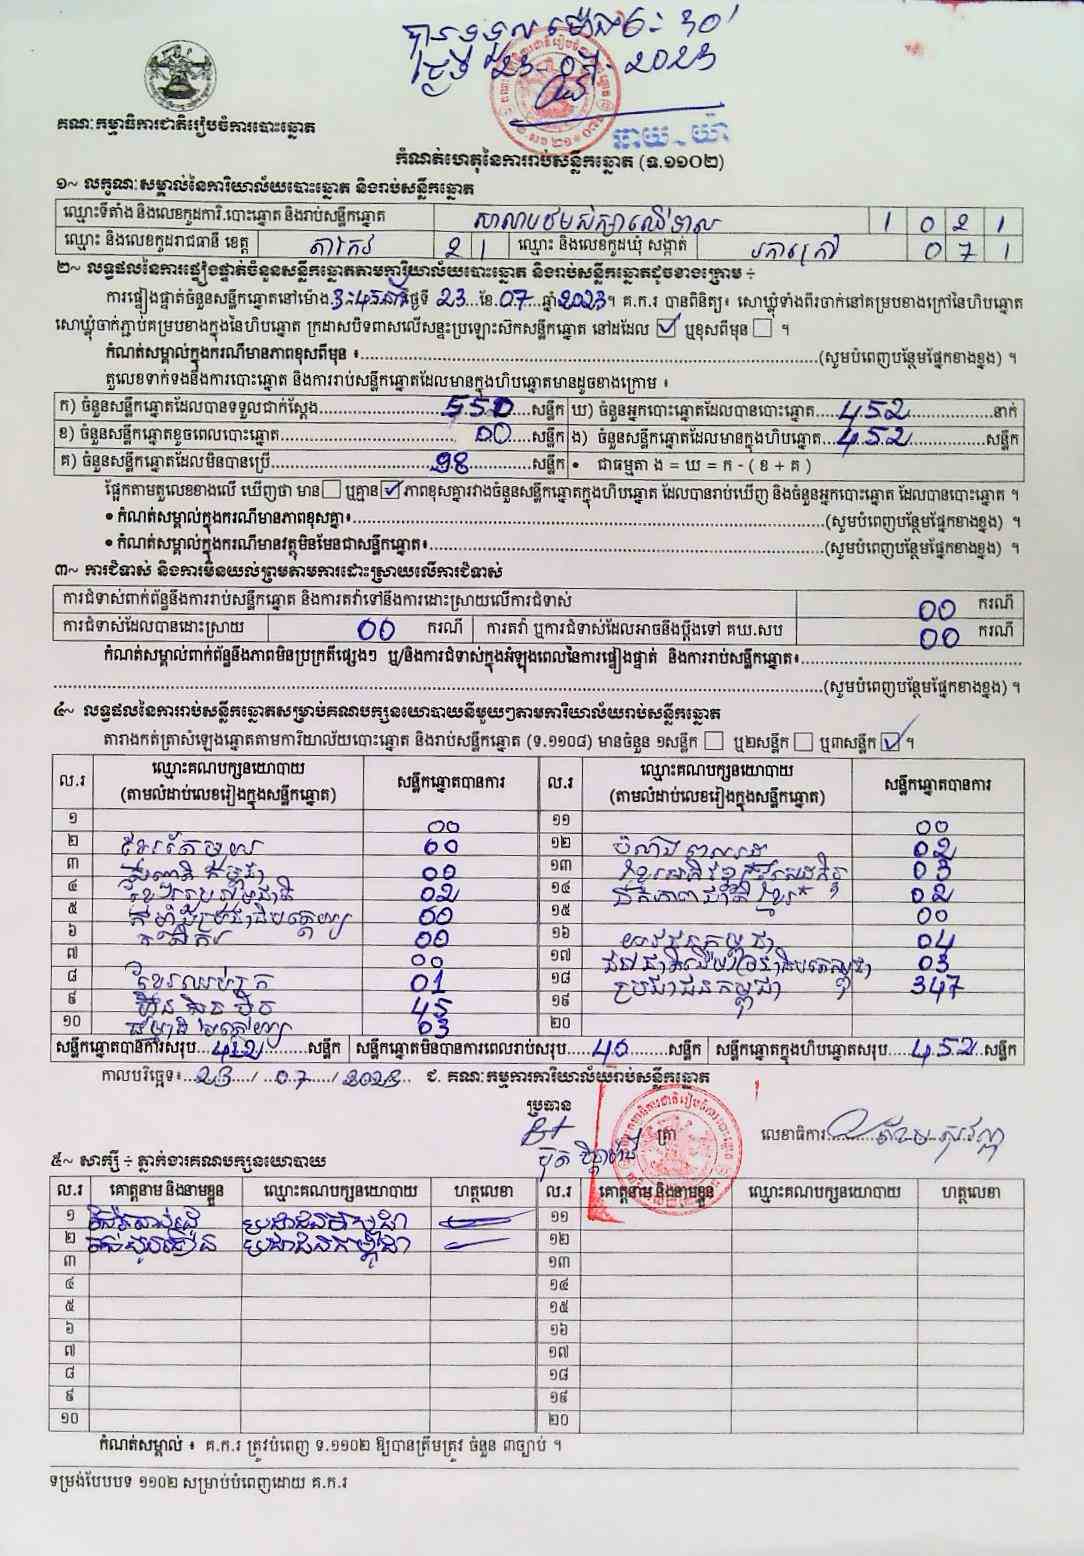 បានទទួលម៉ោង 6:30'
ថ្ងៃទី 23-07-2023
ឆាយ យ៉ា
គណៈកម្មាធិការជាតិរៀបចំការបោះឆ្នោត
កំណត់ហេតុនៃការរាប់សន្លឹកឆ្នោត (ទ.១១០២)
១~ លក្ខណៈសម្គាល់នៃការិយាល័យបោះឆ្នោត និងរាប់សន្លឹកឆ្នោត
ឈ្មោះទីតាំង និងលេខកូដការិ.បោះឆ្នោត និងរាប់សន្លឹកឆ្នោត សាលាបឋមសិក្សាឈើទាល 1 0 2 1
ឈ្មោះ និងលេខកូដរាជធានី ខេត្ត តាកែវ 2 1 ឈ្មោះ និងលេខកូដឃុំ សង្កាត់ រកាក្រៅ 0 7 1
២~ លទ្ធផលនៃការផ្ទៀងផ្ទាត់ចំនួនសន្លឹកឆ្នោតតាមការិយាល័យបោះឆ្នោត និងរាប់សន្លឹកឆ្នោតដូចខាងក្រោម ÷
ការផ្ទៀងផ្ទាត់ចំនួនសន្លឹកឆ្នោតនៅម៉ោង 3:45 នាទី ថ្ងៃទី 23 ខែ 07 ឆ្នាំ 2023។ គ.ក.រ បានពិនិត្យ៖ សោឃ្លុំទាំងពីរចាក់នៅគម្របខាងក្រៅនៃហិបឆ្នោត
សោឃ្លុំចាក់ភ្ជាប់គម្របខាងក្នុងនៃហិបឆ្នោត ក្រដាសបិទពាសលើសន្ទះប្រឡោះស៊កសន្លឹកឆ្នោត នៅដដែល ☑ ឬខុសពីមុន ☐ ។
កំណត់សម្គាល់ក្នុងករណីមានភាពខុសពីមុន ៖ (សូមបំពេញបន្ថែមផ្នែកខាងខ្នង) ។
តួលេខទាក់ទងនឹងការបោះឆ្នោត និងការរាប់សន្លឹកឆ្នោតដែលមានក្នុងហិបឆ្នោតមានដូចខាងក្រោម ៖
ក) ចំនួនសន្លឹកឆ្នោតដែលបានទទួលជាក់ស្តែង 550 សន្លឹក ឃ) ចំនួនអ្នកបោះឆ្នោតដែលបានបោះឆ្នោត 452 នាក់
ខ) ចំនួនសន្លឹកឆ្នោតខូចពេលបោះឆ្នោត 00 សន្លឹក ង) ចំនួនសន្លឹកឆ្នោតដែលមានក្នុងហិបឆ្នោត 452 សន្លឹក
គ) ចំនួនសន្លឹកឆ្នោតដែលមិនបានប្រើ 98 សន្លឹក • ជាធម្មតា ង = ឃ = ក - ( ខ + គ )
ផ្អែកតាមតួលេខខាងលើ ឃើញថា មាន ☐ ឬគ្មាន ☑ ភាពខុសគ្នារវាងចំនួនសន្លឹកឆ្នោតក្នុងហិបឆ្នោត ដែលបានរាប់ឃើញ និងចំនួនអ្នកបោះឆ្នោត ដែលបានបោះឆ្នោត ។
• កំណត់សម្គាល់ក្នុងករណីមានភាពខុសគ្នា៖ (សូមបំពេញបន្ថែមផ្នែកខាងខ្នង) ។
• កំណត់សម្គាល់ក្នុងករណីមានវត្ថុមិនមែនជាសន្លឹកឆ្នោត៖ (សូមបំពេញបន្ថែមផ្នែកខាងខ្នង) ។
៣~ ការជំទាស់ និងការមិនយល់ព្រមតាមការដោះស្រាយលើការជំទាស់
ការជំទាស់ពាក់ព័ន្ធនឹងការរាប់សន្លឹកឆ្នោត និងការតវ៉ាទៅនឹងការដោះស្រាយលើការជំទាស់ 00 ករណី
ការជំទាស់ដែលបានដោះស្រាយ 00 ករណី ការតវ៉ា ឬការជំទាស់ដែលអាចនឹងប្តឹងទៅ គឃ.សប 00 ករណី
កំណត់សម្គាល់ពាក់ព័ន្ធនឹងភាពមិនប្រក្រតីផ្សេងៗ ឬ/និងការជំទាស់ក្នុងអំឡុងពេលនៃការផ្ទៀងផ្ទាត់ និងការរាប់សន្លឹកឆ្នោត៖
(សូមបំពេញបន្ថែមផ្នែកខាងខ្នង) ។
៤~ លទ្ធផលនៃការរាប់សន្លឹកឆ្នោតសម្រាប់គណបក្សនយោបាយនីមួយៗតាមការិយាល័យរាប់សន្លឹកឆ្នោត
តារាងកត់ត្រាសំឡេងឆ្នោតតាមការិយាល័យបោះឆ្នោត និងរាប់សន្លឹកឆ្នោត (ទ.១១០៨) មានចំនួន ១សន្លឹក ☐ ឬ២សន្លឹក ☐ ឬ៣សន្លឹក ☑ ។
ល.រ ឈ្មោះគណបក្សនយោបាយ (តាមលំដាប់លេខរៀងក្នុងសន្លឹកឆ្នោត) សន្លឹកឆ្នោតបានការ ល.រ ឈ្មោះគណបក្សនយោបាយ (តាមលំដាប់លេខរៀងក្នុងសន្លឹកឆ្នោត) សន្លឹកឆ្នោតបានការ
១ 00 ១១ 00
២ ខ្មែរតែមួយ 00 ១២ 02
៣ កម្ពុជា 00 ១៣ 03
៤ ខ្មែររួបរួមជាតិ 02 ១៤ ឯកភាពជាតិខ្មែរ 02
៥ 00 ១៥ 00
៦ កសិករ 00 ១៦ យុវជនកម្ពុជា 04
៧ 00 ១៧ 03
៨ ខ្មែរឈប់ក្រ 01 ១៨ ប្រជាជនកម្ពុជា 347
៩ ហ្វ៊ុនស៊ិនប៉ិច 45 ១៩
១០ 03 ២០
សន្លឹកឆ្នោតបានការសរុប 412 សន្លឹក សន្លឹកឆ្នោតមិនបានការពេលរាប់សរុប 40 សន្លឹក សន្លឹកឆ្នោតក្នុងហិបឆ្នោតសរុប 452 សន្លឹក
កាលបរិច្ឆេទ៖ 23 / 07 / 2023 ជ. គណៈកម្មការការិយាល័យរាប់សន្លឹកឆ្នោត
ប្រធាន ត្រា លេខាធិការ
៥~ សាក្សី ÷ ភ្នាក់ងារគណបក្សនយោបាយ
ល.រ គោត្តនាម និងនាមខ្លួន ឈ្មោះគណបក្សនយោបាយ ហត្ថលេខា ល.រ គោត្តនាម និងនាមខ្លួន ឈ្មោះគណបក្សនយោបាយ ហត្ថលេខា
១ ប្រជាជនកម្ពុជា ១១
២ ប្រជាជនកម្ពុជា ១២
៣ ១៣
៤ ១៤
៥ ១៥
៦ ១៦
៧ ១៧
៨ ១៨
៩ ១៩
១០ ២០
កំណត់សម្គាល់ ៖ គ.ក.រ ត្រូវបំពេញ ទ.១១០២ ឱ្យបានត្រឹមត្រូវ ចំនួន ៣ច្បាប់ ។
ទម្រង់បែបបទ ១១០២ សម្រាប់បំពេញដោយ គ.ក.រ